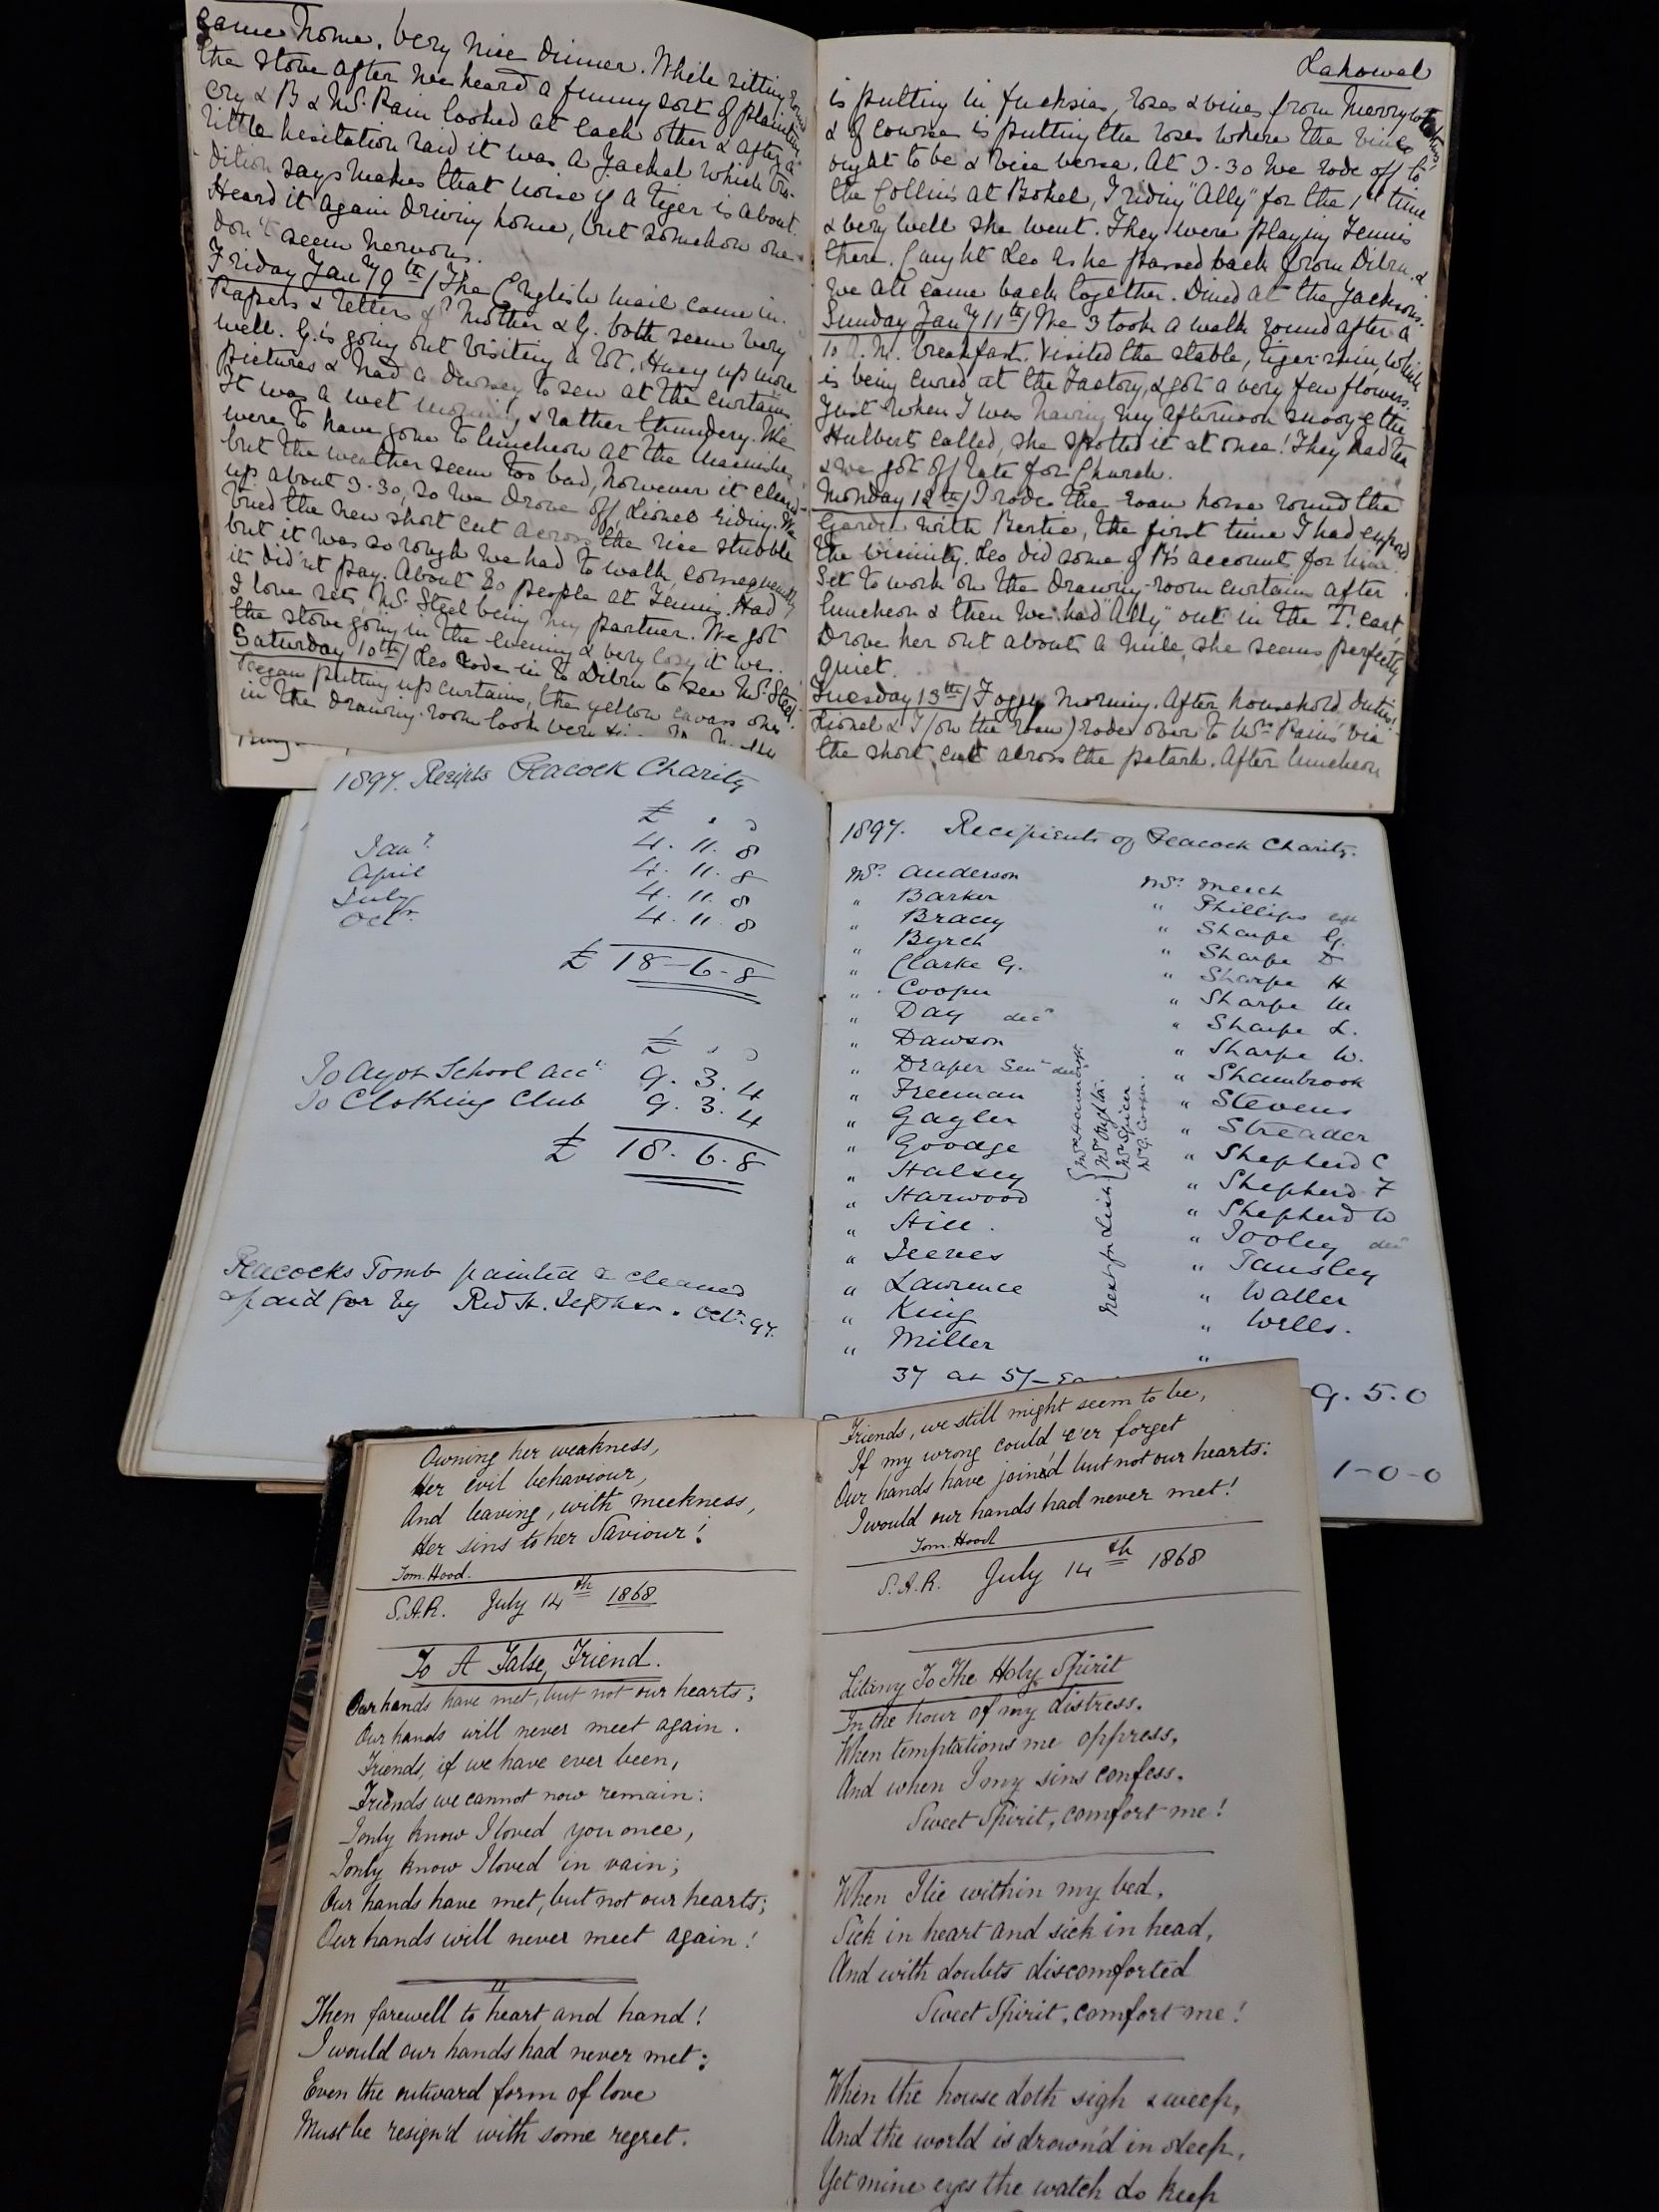 came home. Very nice dinner. While sitting round
the stove after we heard a funny sort of plaintive
cry & B & Mrs. Rain looked at each other & after a
little hesitation said it was a Jackal which tra-
dition says makes that noise if a tiger is about.
Heard it again driving home, but somehow one
don't seem nervous.
Friday Jany 9th/ The English mail came in.
Papers & letters fr. Mother & G. both seem very
well. G. is going out visiting a lot. Hung up more
pictures & had a durzey to sew at the curtains
It was a wet morning & rather thundery. We
were to have gone to luncheon at the
but the weather seem too bad, however it clear-
up about 3-30, so we drove off, Lionel riding. We
tried the new short cut across the rice stubble
but it was so rough we had to walk, consequently
it didn't pay. About 20 people at Tennis. Had
2 love sets, Mrs. Steel being my partner. We got
the stove going in the evening & very cosy it was.
Saturday 10th/ Leo rode in to Dibru to see Mrs. Steel.
Began putting up curtains, the yellow canvas ones
in the drawing-room look very
Lahowal
is putting in fuchsias, roses & vines from
& of course is putting the roses where the vines
ought to be & vice versa. At 3-30 we rode off to
the Collins at Bokel, I riding "Ally" for the 1st time
& very well she went. They were playing Tennis
there. Caught Leo as he passed back from Dibru &
we all came back together. Dined at the Jacksons.
Sunday Jany 11th/ We 3 took a walk round after a
10 A.M. breakfast. Visited the stable, tiger-skin, which
is being cured at the Factory, & got a very few flowers.
Just when I was having my afternoon snooze the
Hulberts called, she spotted it at once! They had tea
& we got off late for Church.
Monday 12th/ I rode the roan horse round the
Garden with Bertie, the first time I had explored
the vicinity. Leo did some of B's accounts for him.
Set to work on the drawing-room curtains after
luncheon & then we had "Ally" out in the T. cart,
Drove her out about a mile, she seems perfectly
quiet.
Tuesday 13th/ Foggy morning. After household duties!
Lionel & I (on the roan) rode over to Mrs Rains' via
the short cut across the patark. After luncheon
1897. Receipts Peacock Charity
£ . s . d
Jany. 4. 11. 8
April 4. 11. 8
July 4. 11. 8
Octr. 4. 11. 8
£ 18-6-8
£ . s . d
To Ayot School acct. 9. 3. 4
To Clothing Club 9. 3. 4
£ 18. 6. 8
Peacocks Tomb painted & cleaned
& paid for by Oct. 97.
1897. Recipients of Peacock Charity.
Mrs. Anderson
" Barker
" Bracey
" Byrch
" Clarke G.
" Cooper
" Day decd
" Dawson
" Draper Senr
" Freeman
" Gayler
" Goodge
" Halsey
" Harwood
" Hill.
" Jeeves
" Lawrence
" King
" Miller
37 at 5/-
Next for List
Mrs Spicer
Mrs. Meech
" Phillips
" Sharpe G.
" Sharpe D
" Sharpe H
" Sharpe M
" Sharpe L.
" Sharpe W.
" Shambrook
" Stevens
" Streader
" Shepherd C
" Shepherd F
" Shepherd W
" Tooley decd
" Tansley
" Waller
" Wells.
"
9. 5. 0
1-0-0
Owning her weakness,
Her evil behaviour,
And leaving, with meekness,
Her sins to her Saviour!
Tom. Hood.
S.A.R. July 14th 1868
To A False Friend.
Our hands have met, but not our hearts;
Our hands will never meet again.
Friends, if we have ever been,
Friends we cannot now remain:
I only know I loved you once,
I only know I loved in vain;
Our hands have met, but not our hearts;
Our hands will never meet again!
II
Then farewell to heart and hand!
I would our hands had never met:
Even the outward form of love
Must be resign'd with some regret.
Friends, we still might seem to be,
If my wrong could e'er forget
Our hands have join'd but not our hearts:
I would our hands had never met!
Tom. Hood
S.A.R. July 14th 1868
Litany To The Holy Spirit
In the hour of my distress.
When temptations me oppress,
And when I my sins confess.
Sweet Spirit, comfort me!
When I lie within my bed,
Sick in heart and sick in head,
And with doubts discomforted
Sweet Spirit, comfort me!
When the house doth sigh & weep,
And the world is drown'd in sleep,
Yet mine eyes the watch do keep